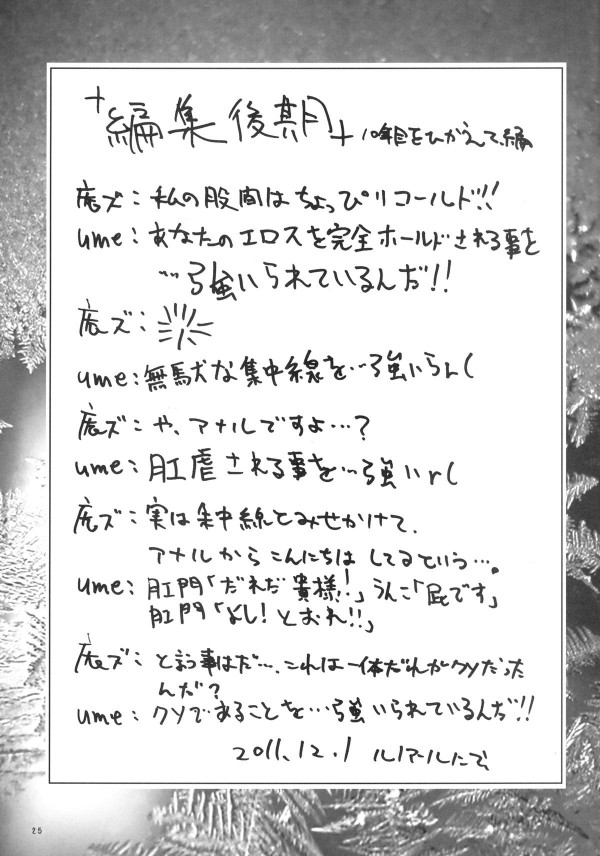 +編集後期+ 10年目をひかえて、編
庶ズ：私の股間はちょっぴりコールド!!
ume：あなたのエロスを完全ホールドされる事を
…強いられているんだ!!
庶ズ：
ume：無駄な集中線を…強いらん(
庶ズ：や、アナルですよ…？
ume：肛虐される事を…強いr(
庶ズ：実は集中線とみせかけて、
アナルからこんにちはしてるという…。
ume：肛門「だれだ貴様!」うんこ「屁です」
肛門「よし!とおれ!!」
庶ズ：と言う事はだ…、これは一体だれがクソだった
んだ？
ume：クソであることを…強いられているんだ!!
2011.12.1 ルノアールにて、
25